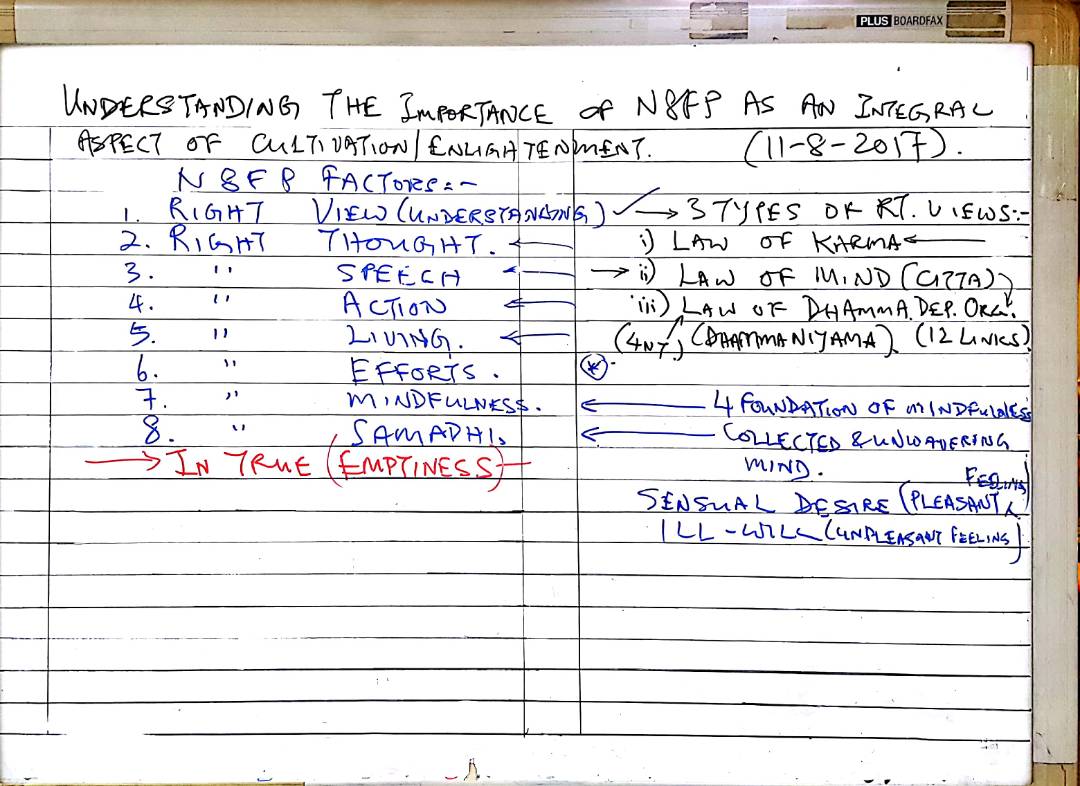 PLUS BOARDFAX
UNDERSTANDING THE IMPORTANCE OF N8FP AS AN INTEGRAL
ASPECT OF CULTIVATION/ENLIGHTENMENT. (11-8-2017).
N8FP FACTORS:-
1. RIGHT VIEW (UNDERSTANDING) ✓ → 3 TYPES OF RT. VIEWS:-
2. RIGHT THOUGHT. ← i) LAW OF KARMA ←
3. " SPEECH ← → ii) LAW OF MIND (CITTA)
4. " ACTION ← iii) LAW OF DHAMMA. DEP. ORG.
5. " LIVING. ← (4NT.) (DHAMMANIYAMA). (12 LINKS)
6. " EFFORTS. (*).
7. " MINDFULNESS. ← 4 FOUNDATION OF MINDFULNESS
8. " SAMADHI. ← COLLECTED & UNWAVERING
→ IN TRUE (EMPTINESS) MIND.
SENSUAL DESIRE (PLEASANT FEELING) &
ILL-WILL (UNPLEASANT FEELING)